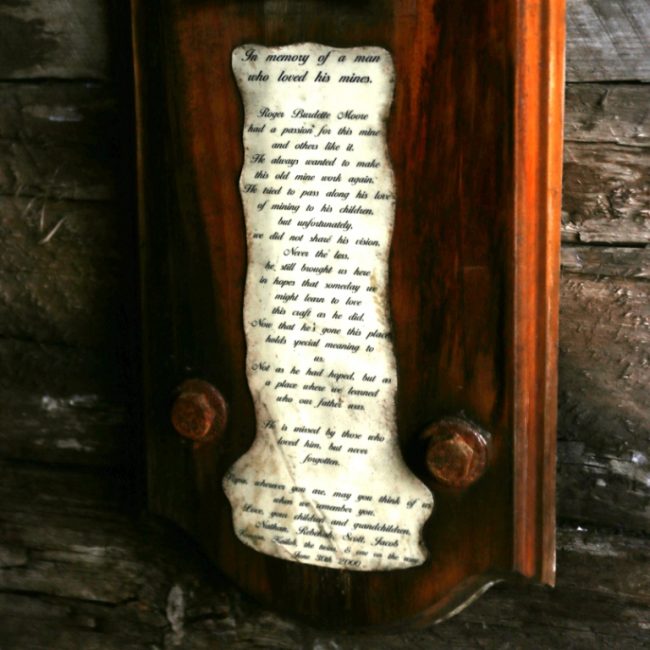 In memory of a man
who loved his mines.
Roger Burdette Moore
had a passion for this mine
and others like it.
He always wanted to make
this old mine work again.
He tried to pass along his love
of mining to his children,
but unfortunately,
we did not share his vision.
Never the less,
he still brought us here
in hopes that someday we
might learn to love
this craft as he did.
Now that he's gone this place
holds special meaning to
us.
Not as he had hoped, but as
a place where we learned
who our father was.
He is missed by those who
loved him, but never
forgotten.
wherever you are, may you think of us
when we remember you.
Love, your children and grandchildren,
Nathan, Rebekah, Scott, Jacob
the twins, & one on the way
June 30th 2000